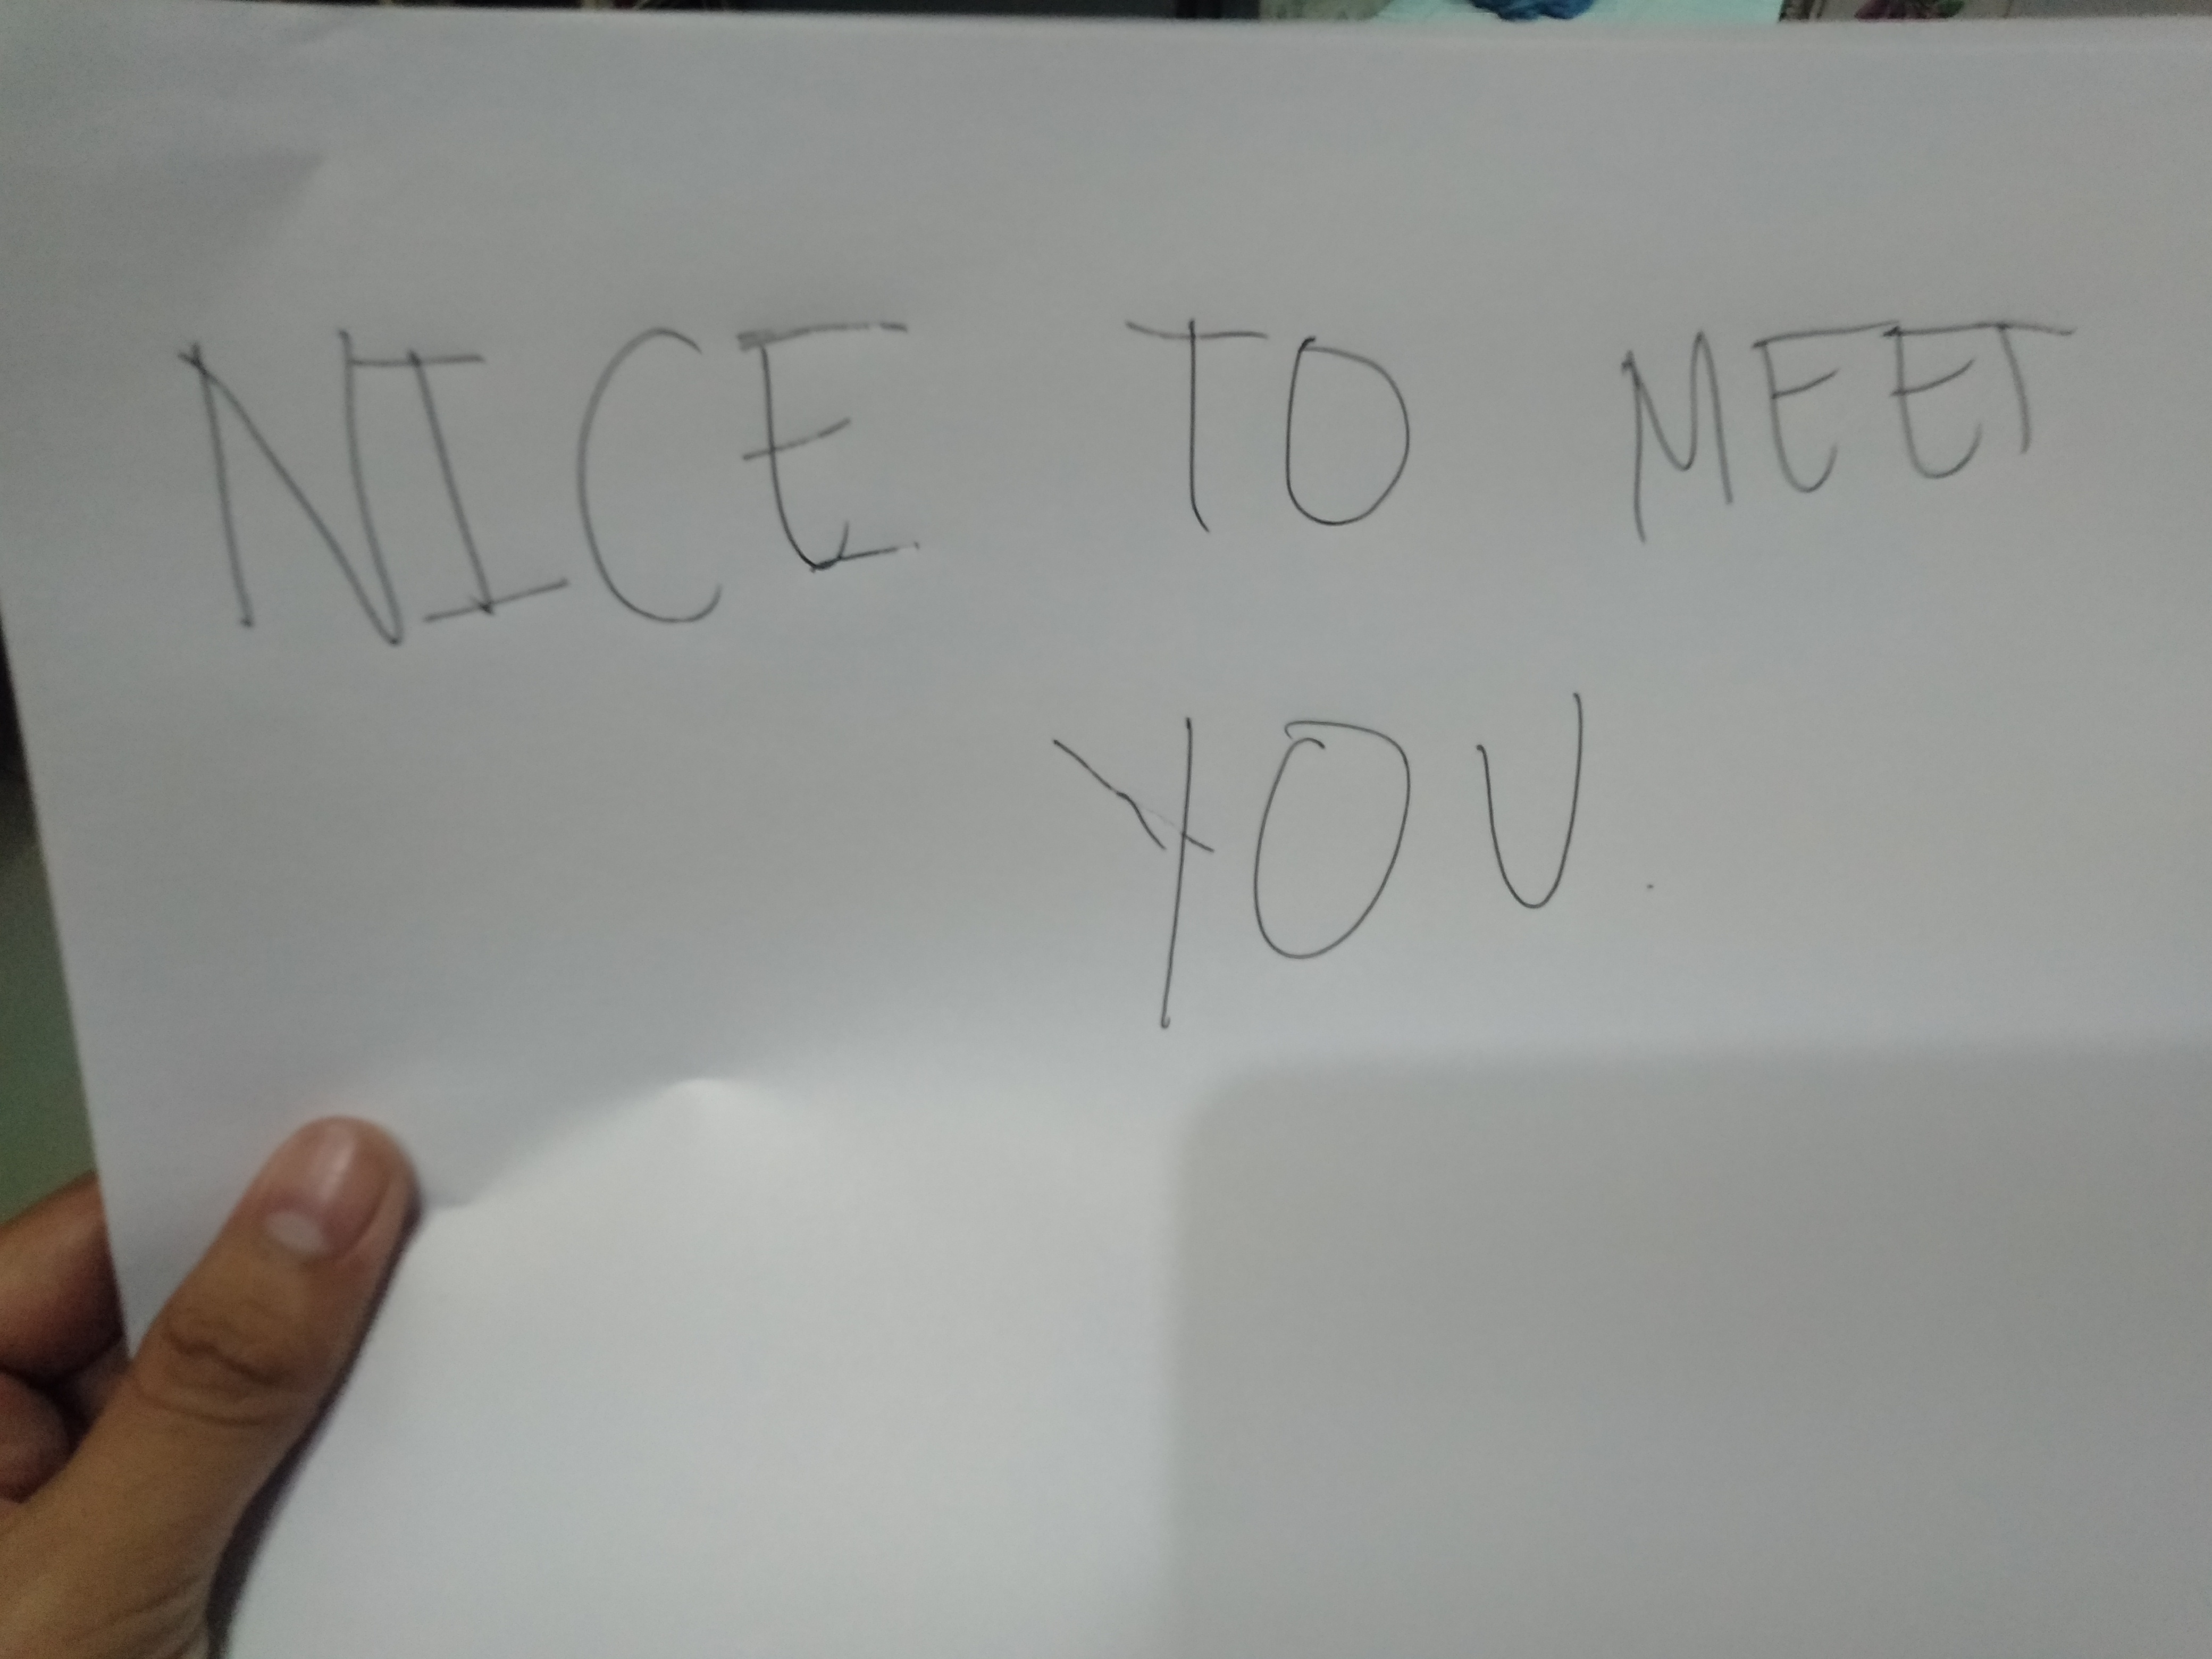 NICE TO MEET
YOU.